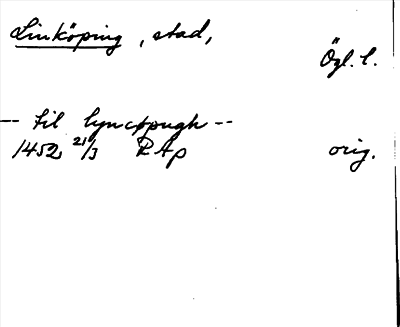 Linköping, stad,
Ögl. l.
-- til lyncøpugh --
1452 21/3 RAp orig.